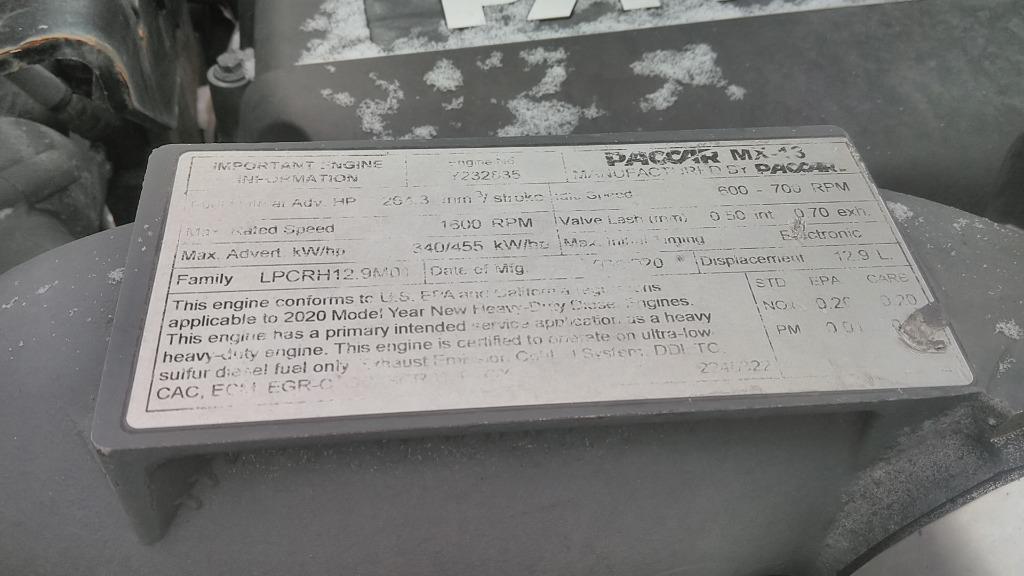 PAC
IMPORTANT ENGINE
INFORMATION
Engine No
Y232835
PACCAR MX-13
MANUFACTURED BY PACCAR
Adv. HP mm³/stroke
Idle Speed 600 - 700 RPM
Max. Rated Speed 1600 RPM
Valve Lash (mm) 0.50 int 0.70 exh.
Max. Advert. kW/hp 340/455 kW/hp
Max. Initial Timing Electronic
Family LPCRH12.9M01
Date of Mfg.
Displacement 12.9 L.
This engine conforms to U.S. EPA and California regulations
applicable to 2020 Model Year New Heavy-Duty Diesel Engines.
This engine has a primary intended service application as a heavy
heavy-duty engine. This engine is certified to operate on ultra-low
sulfur diesel fuel only. Exhaust Emission Control System: DDI, TC,
CAC, ECM, EGR-C
STD EPA CARB
NOx 0.20 0.20
PM 0.01